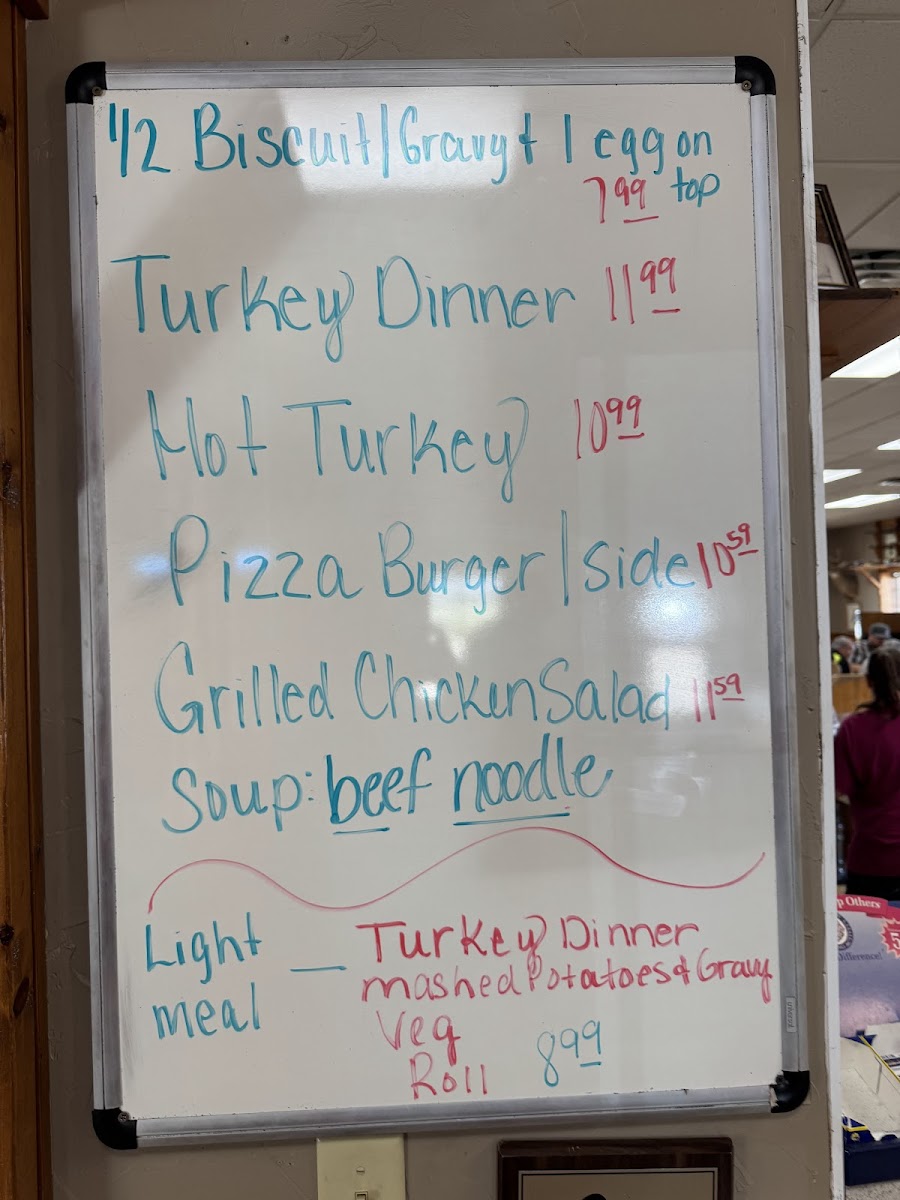 1/2 Biscuit/Gravy + 1 egg on
7.99 top
Turkey Dinner 11.99
Hot Turkey 10.99
Pizza Burger/side 10.59
Grilled Chicken Salad 11.59
Soup: beef noodle
Light — Turkey Dinner
mashed Potatoes & Gravy
meal
Veg
Roll 8.99
p Others
difference!